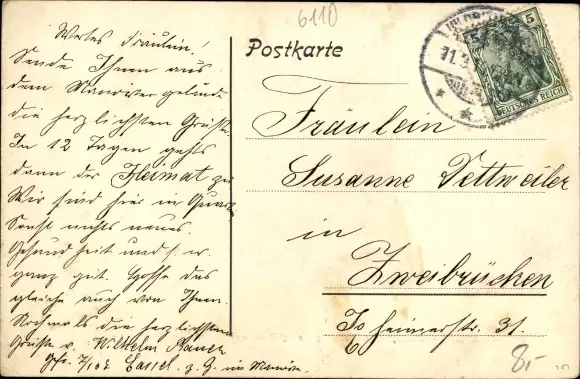 6110
Wertes Fräulein!
Sende Ihnen aus
dem Manövergelände
die herzlichsten Grüße.
In 12 Tagen gehts
dann der Heimat zu
Wir sind hier in Quartier
Sonst nichts neues.
Gesundheit und s. w.
ganz gut. Hoffe das
gleiche auch von Ihnen.
Nochmals die herzlichsten
Grüße v. Wilhelm Bauer
Cassel. z. Z. im Manöver.
Postkarte
5
DEUTSCHES REICH
Fräulein
Susanne Dettweiler
in
Zweibrücken
Ixheimerstr. 31.
8,-